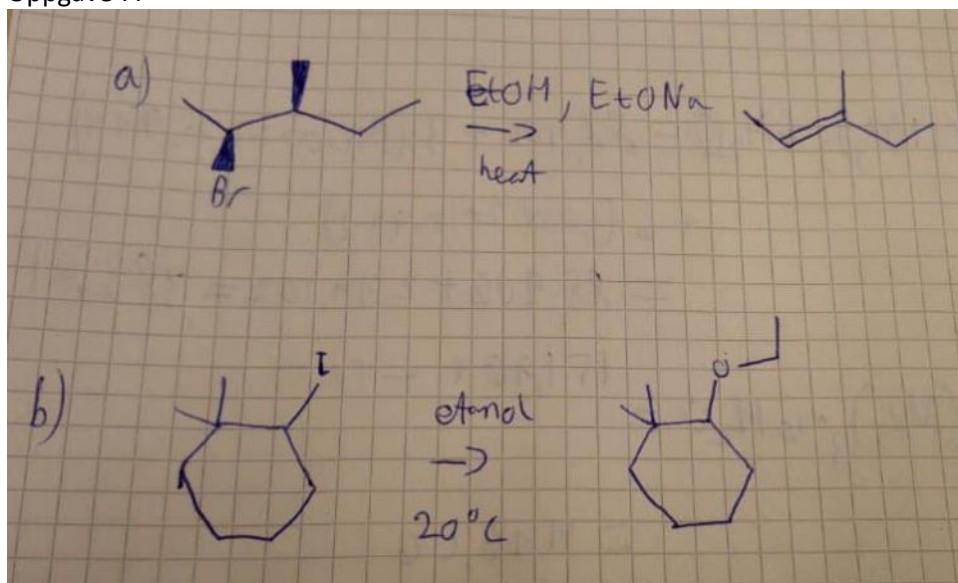 a)
EtOH, EtONa
heat
Br
b)
I
etanol
20°C
O